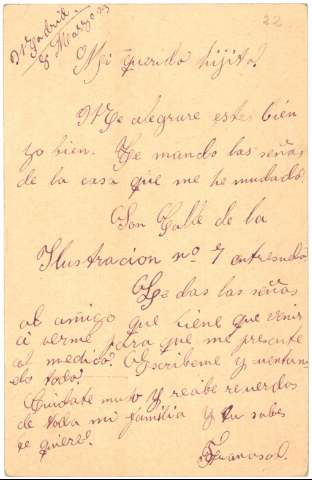 Madrid
8 Marzo
22
Mi querido hijito:
Me alegrare estes bien
yo bien. Te mando las señas
de la casa que me he mudado.
Son Calle de la
Ilustracion nº 7 entresuelo
Le das las señas
al amigo que tiene que venir
á verme para que me presente
al medico. Escribeme y
do todo.
Cuidate mucho y recibe recuerdos
de toda mi familia y tu sabes
te quiere.